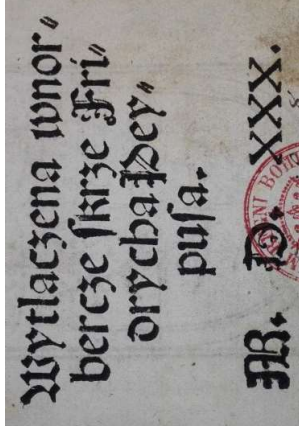 Wytlaczena wnor〃
bercze ſkrze Fri〃
drycha Pey〃
puſa.
M. D. XXX.